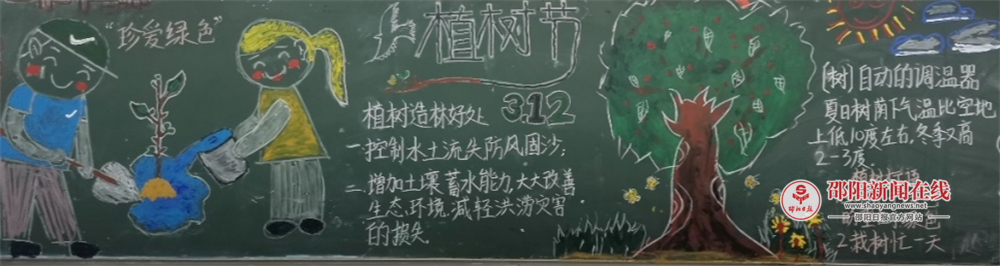 "珍爱绿色"
植树节
3.12
植树造林好处
一.控制水土流失防风固沙;
二.增加土壤蓄水能力,大大改善
生态环境,减轻洪涝灾害
的损失
(树)自动的调温器
夏日树荫下气温比空地
上低10度左右,冬季又高
2-3度.
2.栽树忙一天
邵阳新闻在线
www.shaoyangnews.net
邵阳日报官方网站
邵阳日报